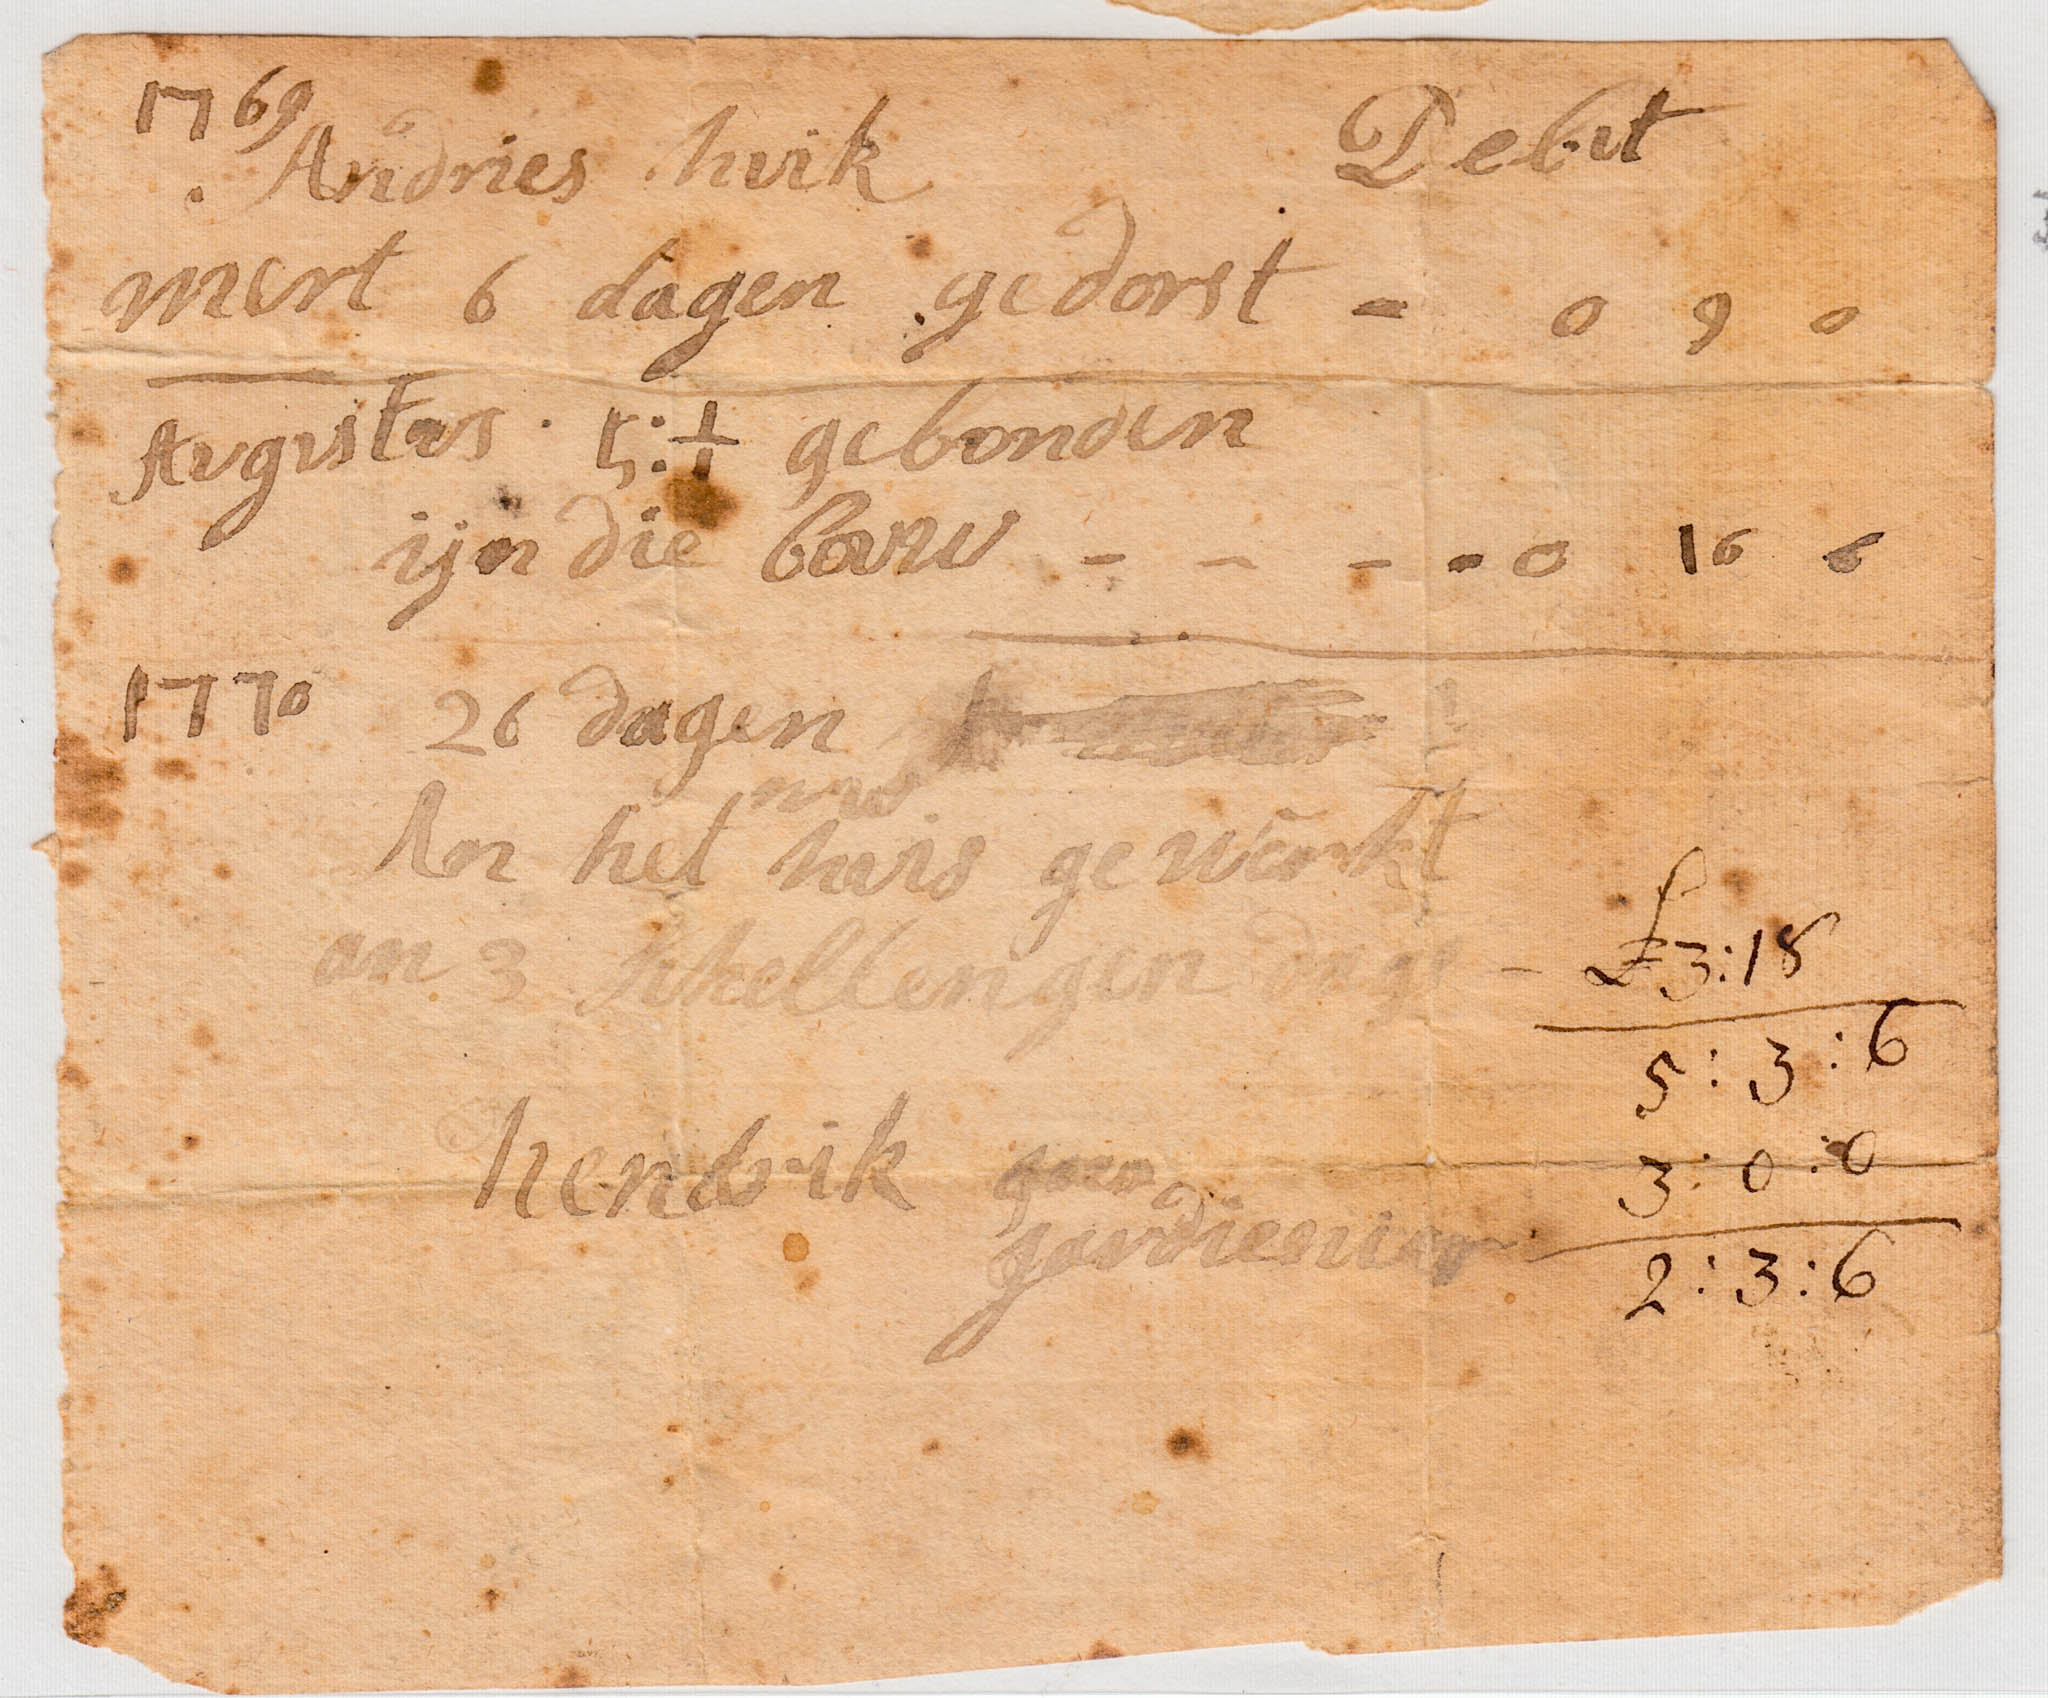 1769
Andries huik Debit
mert 6 dagen gedorst - 0 9 0
Augustus 5:½ gebonden
ijn die bouw - - - - 0 16 6
1770 26 dagen
An het huis gewerkt
an 3 schellengen dage - £3:18
5:3:6
hendrik 3:0:0
gardienier
2:3:6